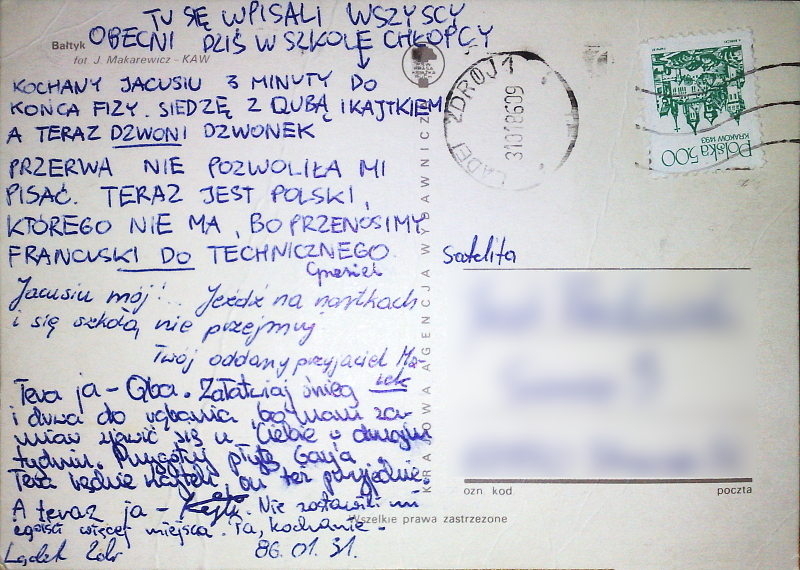 TU SIĘ WPISALI WSZYSCY
OBECNI DZIŚ W SZKOLE CHŁOPCY
Bałtyk
fot J. Makarewicz - KAW
KOCHANY JACUSIU 3 MINUTY DO
KOŃCA FIZY. SIEDZĘ Z QUBĄ I KAJTKIEM
A TERAZ DZWONI DZWONEK
PRZERWA NIE POZWOLIŁA MI
PISAĆ. TERAZ JEST POLSKI,
KTÓREGO NIE MA, BO PRZENOSIMY
FRANCUSKI DO TECHNICZNEGO.
Jacusiu mój!.. Jeźdź na nartkach
i się szkołą nie przejmuj
Twój oddany przyjaciel Ma-
Teraz ja - Qba. Załatwiaj śnieg
i drwa do rąbania, bo mam za-
miar zjawić się u Ciebie w drugim
tydniu. Przygotuj płytę
Teraz będzie Kajtek, on też przyjedzie.
A teraz ja - Nie zostawili mi
egoiści więcej miejsca. Pa, kochanie -
Lądek Zdr 86.01.31.
KRAJOWA AGENCJA WYDAWNICZA
Wszelkie prawa zastrzezone
LĄDEK ZDRÓJ 1
310186
Polska 5.00
KRAKÓW 1493
Satelita
ozn kod.
poczta